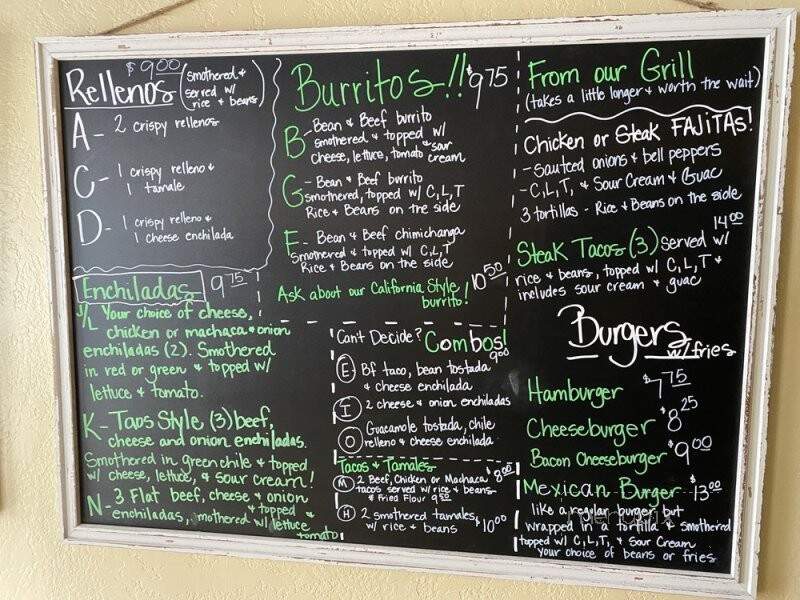 Rellenos $9.00 (smothered &
served w/
rice & beans)
A - 2 crispy rellenos
C - 1 crispy relleno &
1 tamale
D - 1 crispy relleno &
1 cheese enchilada
Enchiladas 9 75
J/L Your choice of cheese,
chicken or machaca & onion
enchiladas (2). Smothered
in red or green & topped w/
lettuce & tomato.
K - Taos Style (3) beef,
cheese and onion enchiladas.
Smothered in green chile & topped
w/ cheese, lettuce, & sour cream!
N - 3 Flat beef, cheese & onion
enchiladas, smothered & topped
w/ lettuce &
tomato
Burritos!! $9 75
B - Bean & Beef burrito
smothered & topped w/
cheese, lettuce, tomato & sour
cream
G - Bean & Beef burrito
smothered, topped w/ C,L,T
Rice & Beans on the side
F - Bean & Beef chimichanga
Smothered & topped w/ C,L,T
Rice & Beans on the side
Ask about our California Style
burrito! 10 50
Can't Decide? Combos!
9 00
E Bf taco, bean tostada
& cheese enchilada
I 2 cheese & onion enchiladas
O Guacamole tostada, chile
relleno & cheese enchilada
Tacos & Tamales
M 2 Beef, Chicken or Machaca $8.00
tacos served w/ rice & beans
* Fried Flour 9 50
H 2 smothered tamales,
w/ rice & beans $10.00
From our Grill
(takes a little longer & worth the wait)
Chicken or Steak FAJITAS!
- sauteed onions & bell peppers
- C,L,T, & Sour Cream & Guac
3 tortillas - Rice & Beans on the side
14 00
Steak Tacos (3) served w/
rice & beans, topped w/ C,L,T &
includes sour cream & guac
Burgers
w/ fries
Hamburger $7 75
Cheeseburger $8 25
Bacon Cheeseburger $9 00
Mexican Burger $13 00
like a regular burger, but
wrapped in a tortilla & smothered
topped w/ C,L,T, & Sour Cream
your choice of beans or fries